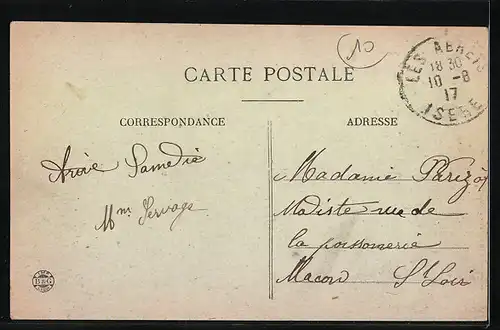 10
LES ABRETS
18 30
10 -8
17
ISERE
CARTE POSTALE
CORRESPONDANCE
ADRESSE
Samedie
Mme Servage
Madame Parizot
Modiste rue de
la poissonerie
Macon S. Loir
B & G